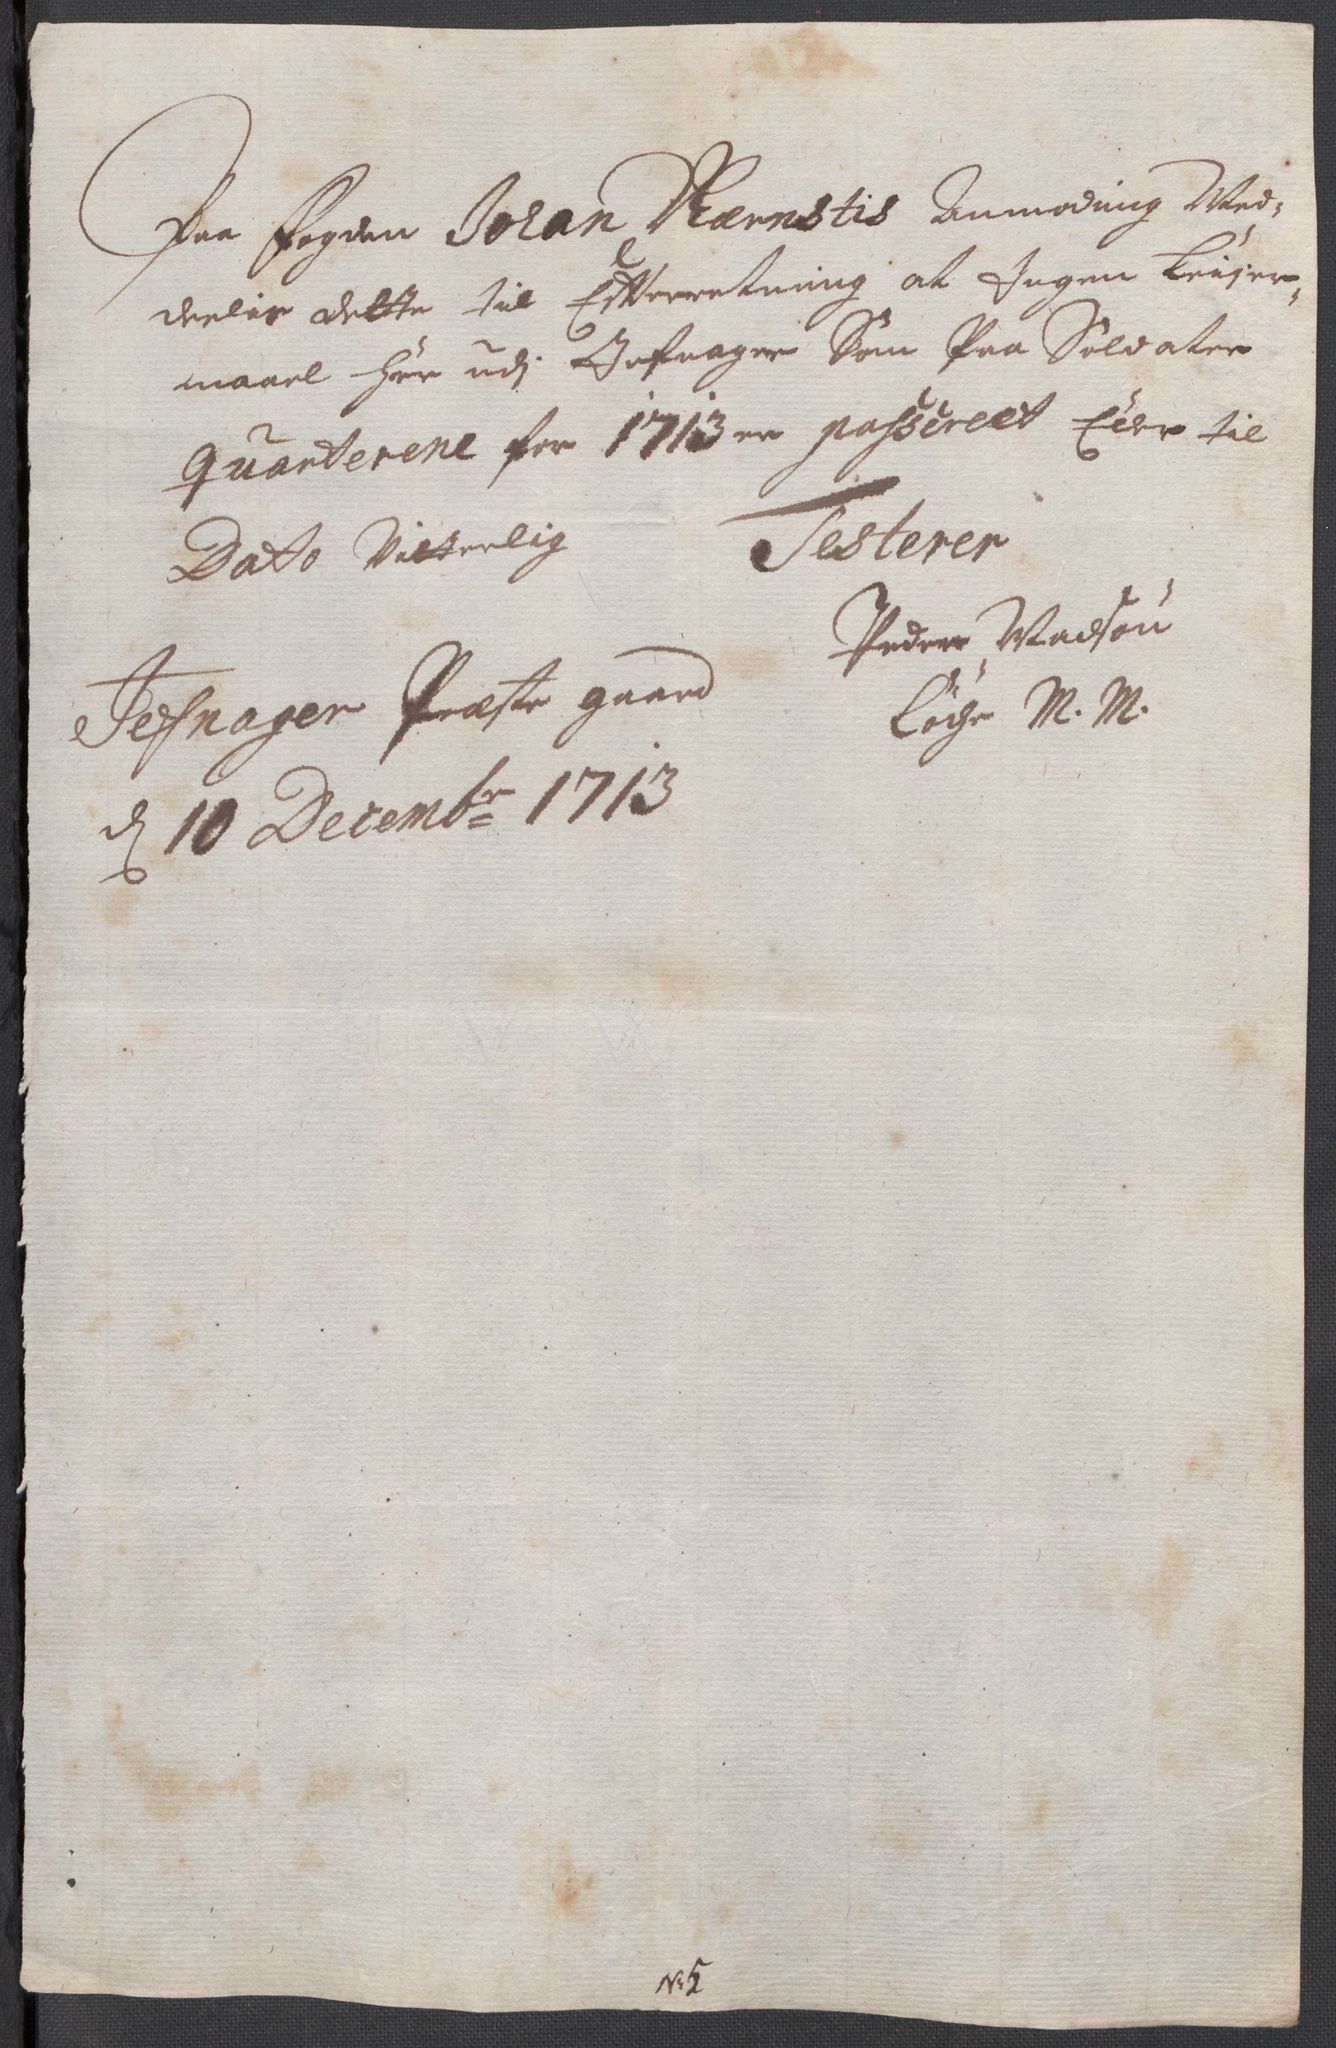 Paa Fogden Johan Ræenstis Anmoding Med-
deelis dette til Efterretning at Ingen Leyer-
maal her udj Jefnager Som Paa Soldater
Quarterene for 1713 er passeret Eder til
Dato Vitterlig Testerer
Peder Madsøn
Loche M. M.
Jefnager Præste gaard
d 10 Decembr 1713
No 5